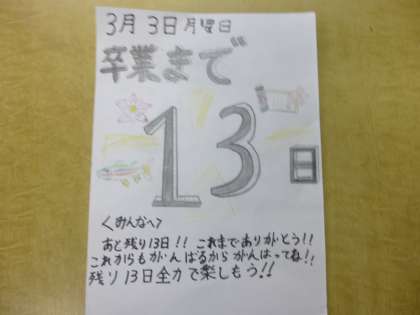 3月3日月曜日
卒業まで
13日
<みんなへ>
あと残り13日!! これまでありがとう!!
これからもがんばるからがんばってね!!
残り13日全力で楽しもう!!